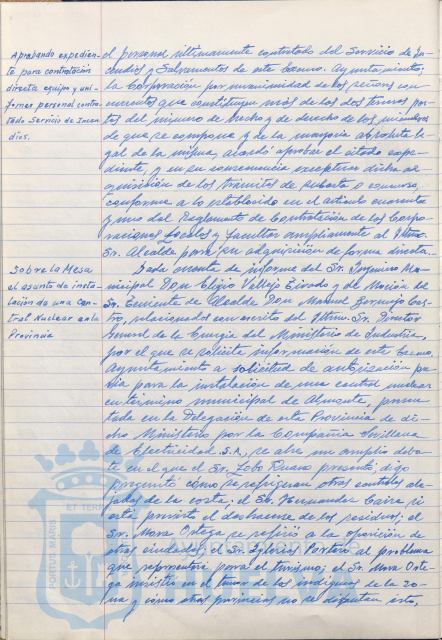 Aprobando expedien-
te para contratación
directa equipo y uni-
formes personal contra-
tado Servicio de Incen-
dios.
el personal últimamente contratado del Servicio de In-
cendios y Salvamentos de este Excmo. Ayuntamiento,
la Corporación por unanimidad de los señores con-
currentes que constituyen más de los dos tercios par-
tes del número de hecho y de derecho de los miembros
de que se compone y de la mayoría absoluta le-
gal de la misma, acordó aprobar el citado expe-
diente, y en su consecuencia exceptuar dicha ad-
quisición de los trámites de subasta o concurso,
conforme a lo establecido en el artículo cuarenta
y uno del Reglamento de Contratación de las Corpo-
raciones Locales y facultar ampliamente al Iltmo.
Sr. Alcalde para su adquisición de forma directa.
Sobre la Mesa
el asunto de insta-
lación de una Cen-
tral Nuclear en la
Provincia
Dada cuenta de informe del Sr. Ingeniero Mu-
nicipal Don Eligio Vallejo Eirado y de Moción del
Sr. Teniente de Alcalde Don Manuel Bermejo Cas-
tro, relacionados con escrito del Iltmo. Sr. Director
General de la Energía del Ministerio de Industria,
por el que se solicita información de este Excmo.
Ayuntamiento a solicitud de autorización pre-
via para la instalación de una central nuclear
en término municipal de Almonte, presen-
tada en la Delegación de esta Provincia de di-
cho Ministerio por la Compañía Sevillana
de Electricidad S.A., se abre un amplio deba-
te en el que el Sr. Lobo Ruano presentó, digo
preguntó cómo se refrigeran otras centrales ale-
jadas de la costa; el Sr. Hernandez Caire si
está previsto el deshacerse de los residuos; el
Sr. Mora Ortega se refirió a la oposición de
otras ciudades; el Sr. Iglesias Portero al problema
que representa para el turismo; el Sr. Mora Orte-
ga insistió en el temor de los indígenas de la zo-
na y cómo otras provincias no se disputan esto,
PORTUS MARIS
ET TER